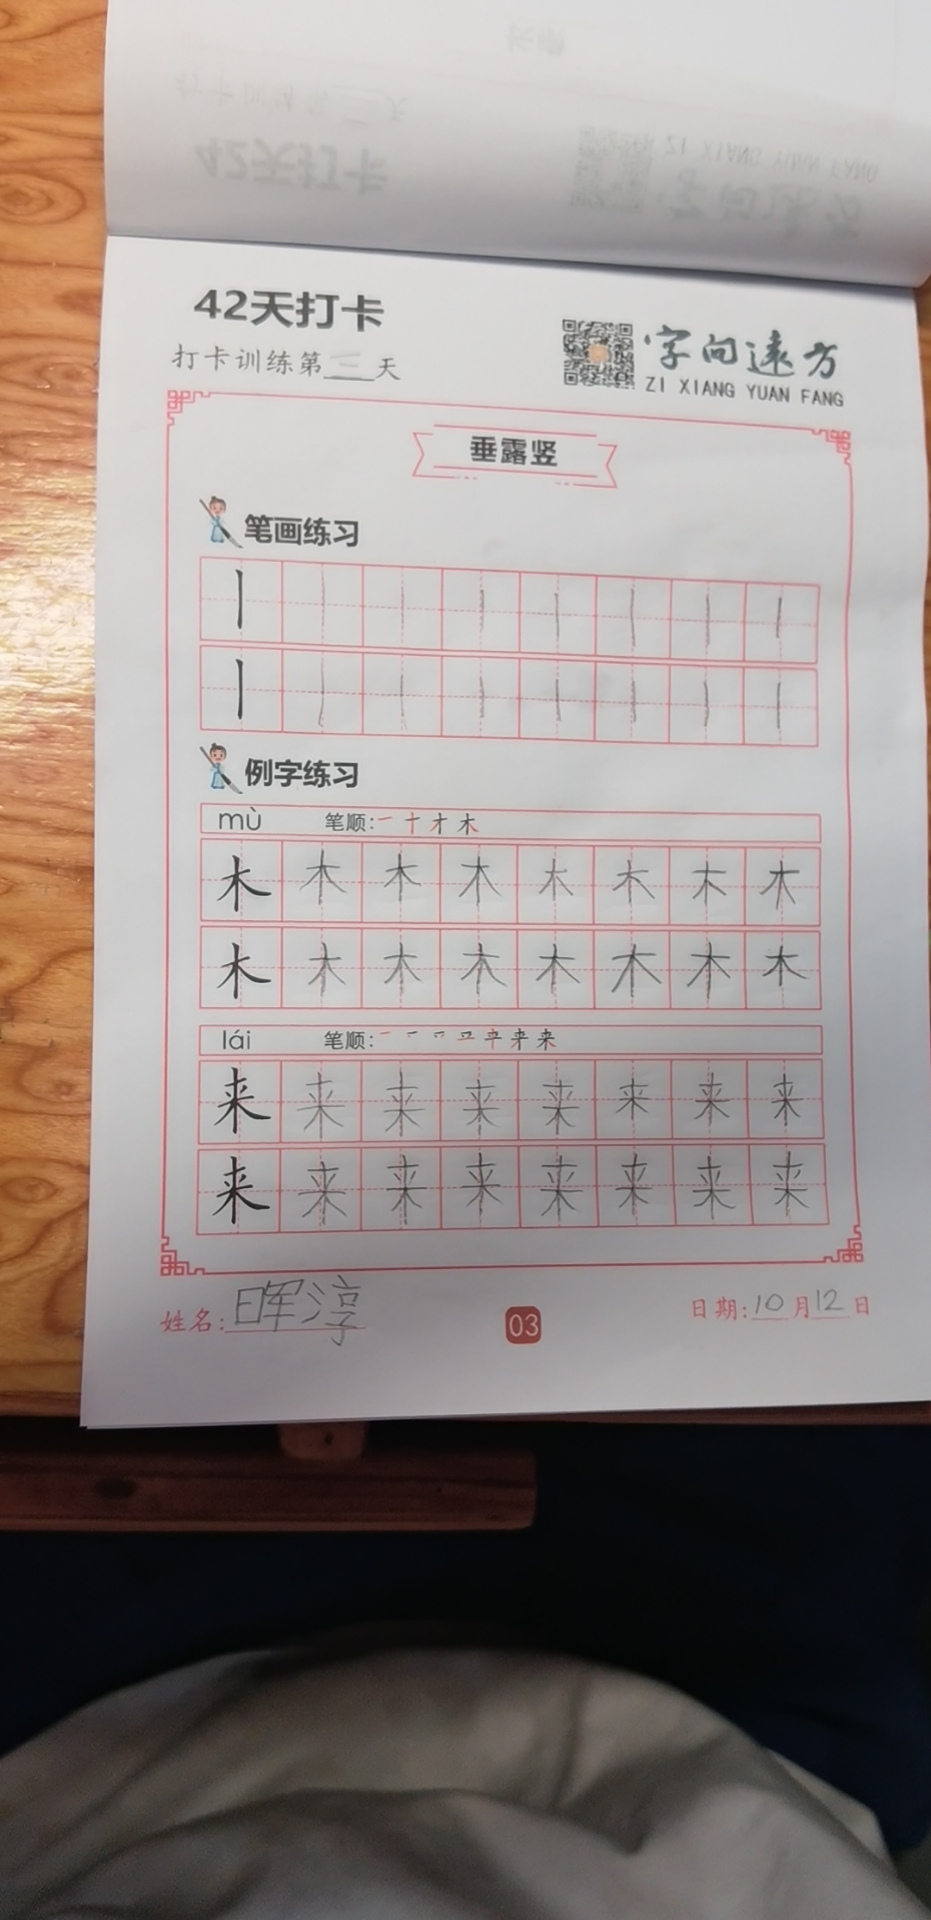 42天打卡
打卡训练第三天
字向远方
ZI XIANG YUAN FANG
垂露竖
笔画练习
丨 丨 丨 丨 丨 丨 丨 丨
丨 丨 丨 丨 丨 丨 丨 丨
例字练习
mù 笔顺: 一 十 才 木
木 木 木 木 木 木 木 木
木 木 木 木 木 木 木 木
lái 笔顺:
来 来 来 来 来 来 来 来
来 来 来 来 来 来 来 来
姓名: 晖淳
03
日期: 10月12日